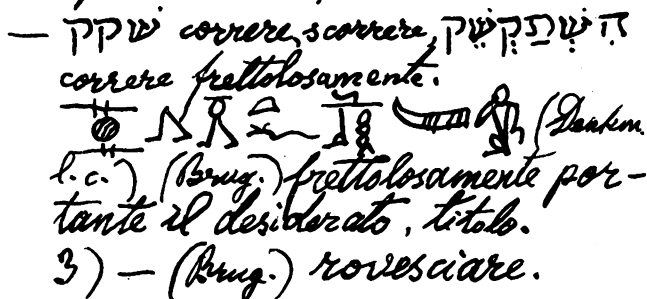 — שׁקק correre, scorrere, הִשְׁתַּקְשֵׁק
correre frettolosamente.
(Denkm.
l. c.) (Brug.) frettolosamente por-
tante il desiderato, titolo.
3) — (Brug.) rovesciare.